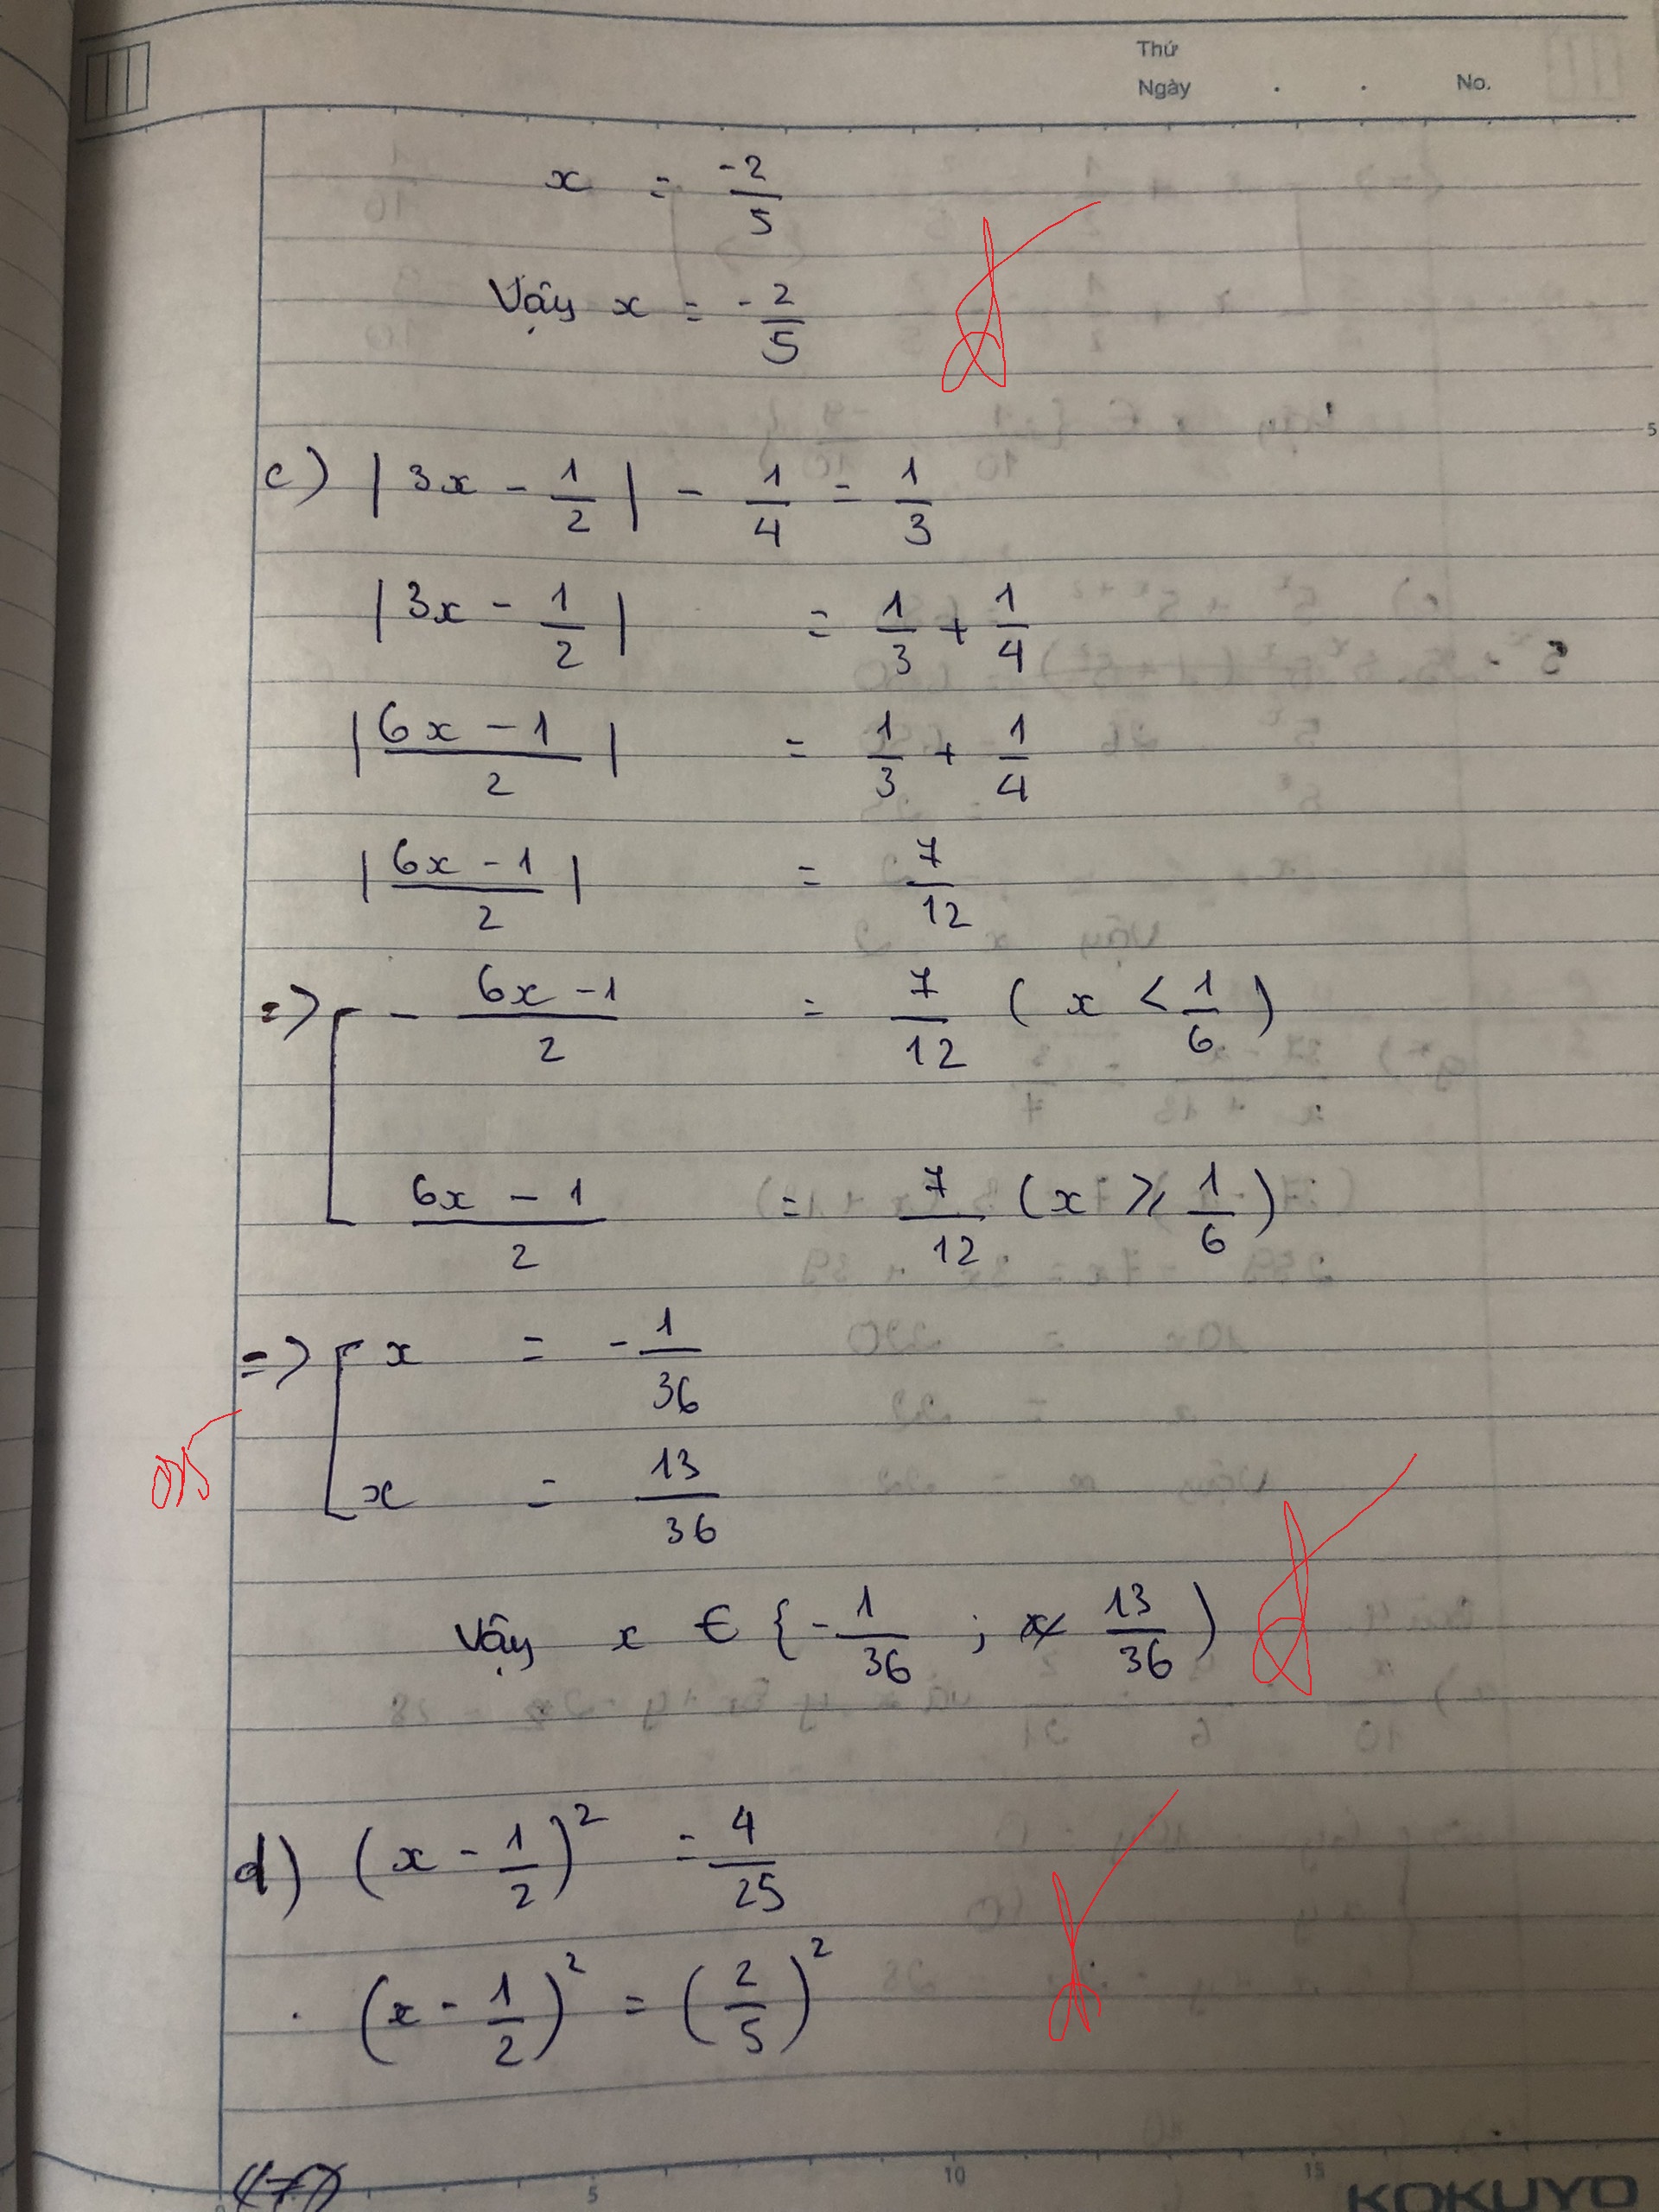 Thứ
Ngày . . No.
x = -2/5
Vậy x = -2/5
5
c) |3x - 1/2| - 1/4 = 1/3
|3x - 1/2| = 1/3 + 1/4
|(6x - 1)/2| = 1/3 + 1/4
|(6x - 1)/2| = 7/12
=> [ - (6x - 1)/2 = 7/12 (x < 1/6)
(6x - 1)/2 = 7/12 (x ⩾ 1/6)
=> [ x = -1/36
x = 13/36
Vậy x ∈ {-1/36 ; 13/36)
d) (x - 1/2)² = 4/25
(x - 1/2)² = (2/5)²
5 10 15
KOKUYO